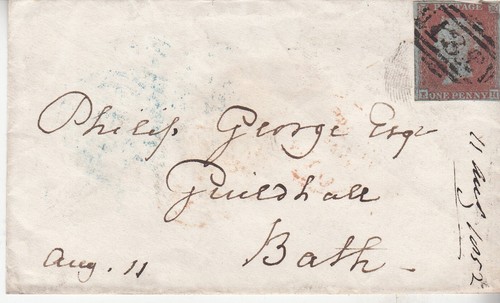 POSTAGE
ONE PENNY
Philip George Esqr
Guildhall
Bath.
Aug. 11
11 Aug 1852